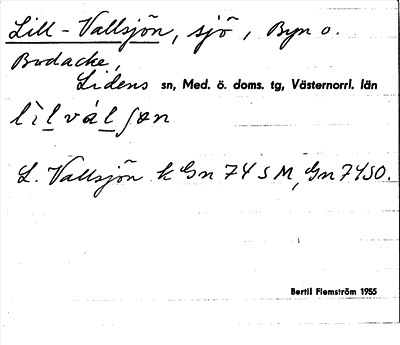 Lill-Vallsjön, sjö, Byn o.
Bodacke,
Lidens sn, Med. ö. doms. tg, Västernorrl. län
lìlválʃøn
L. Vallsjön k Gn 74 S M, Gn 74 SO.
Bertil Flemström 1955